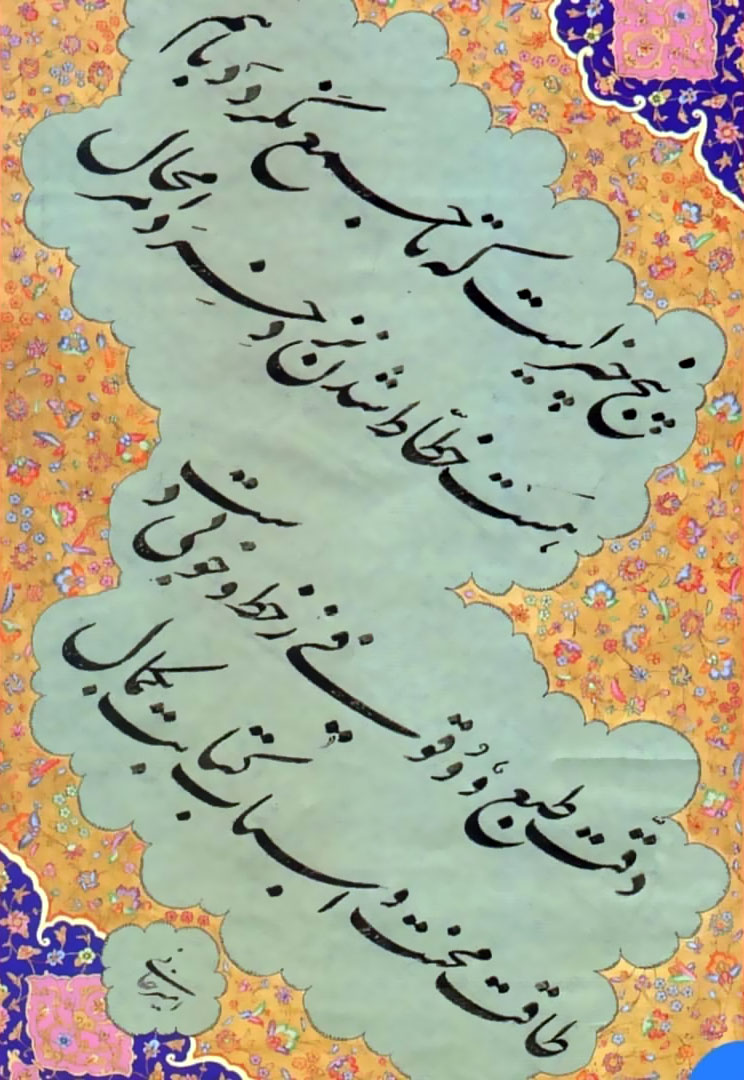 پنج چیز است که تا جمع نگردد با هم
هست خطّاط شدن نزد خِرَد امر محال
دقت طبع و وُقوفی ز خط و خوبی دست
طاقت محنت و اسباب کتابت بکمال
امیرخانی